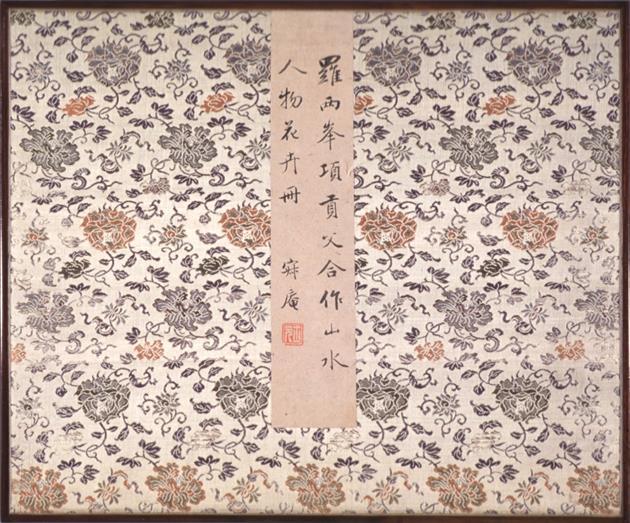 羅兩峯項貢父合作山水
人物花卉冊 寐庵